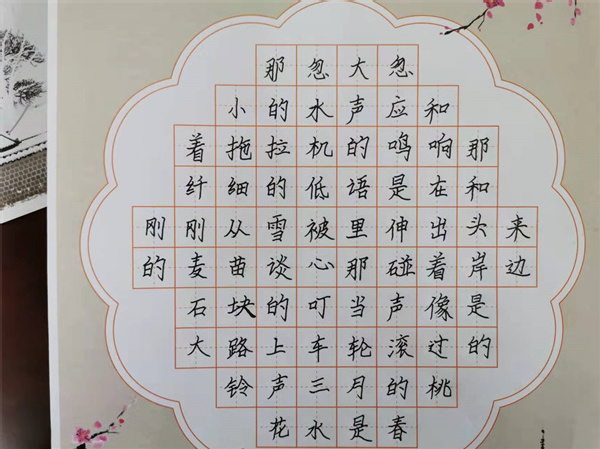 那忽大忽
小的水声应和
着拖拉机的鸣响那
纤细的低语是在和
刚刚从雪被里伸出头来
的麦苗谈心那碰着岸边
石块的叮当声像是
大路上车轮滚过的
铃声三月的桃
花水是春